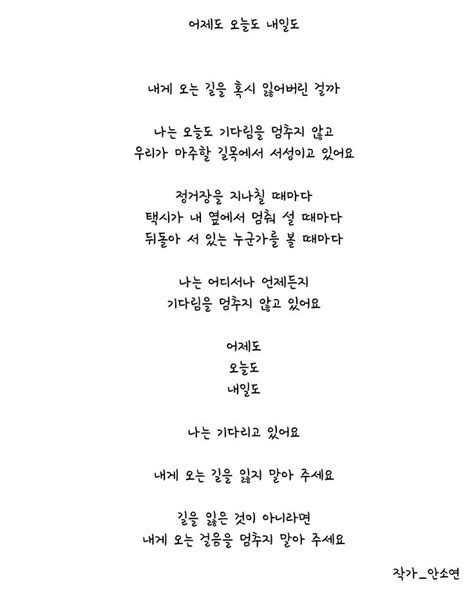 어제도 오늘도 내일도
내게 오는 길을 혹시 잃어버린 걸까
나는 오늘도 기다림을 멈추지 않고
우리가 마주할 길목에서 서성이고 있어요
정거장을 지나칠 때마다
택시가 내 옆에서 멈춰 설 때마다
뒤돌아 서 있는 누군가를 볼 때마다
나는 어디서나 언제든지
기다림을 멈추지 않고 있어요
어제도
오늘도
내일도
나는 기다리고 있어요
내게 오는 길을 잃지 말아 주세요
길을 잃은 것이 아니라면
내게 오는 걸음을 멈추지 말아 주세요
작가_안소연